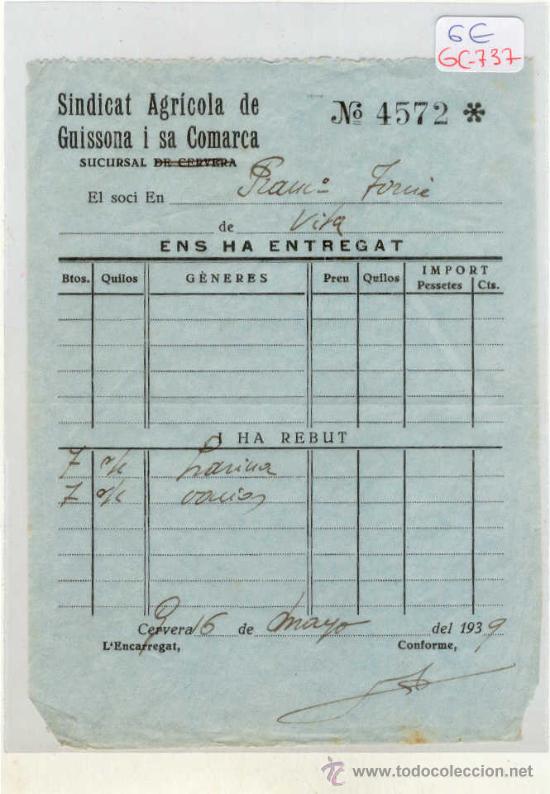 6€
GC-737
Sindicat Agrícola de
Guissona i sa Comarca
Nº 4572 *
SUCURSAL DE CERVERA
El soci En Ramº Torné
de Vila
ENS HA ENTREGAT
Btos. Quilos GÈNERES Preu Quilos IMPORT
Pessetes Cts.
I HA REBUT
7 harina
7 vacios
Cervera 16 de mayo del 1939
L'Encarregat, Conforme,
www.todocoleccion.net